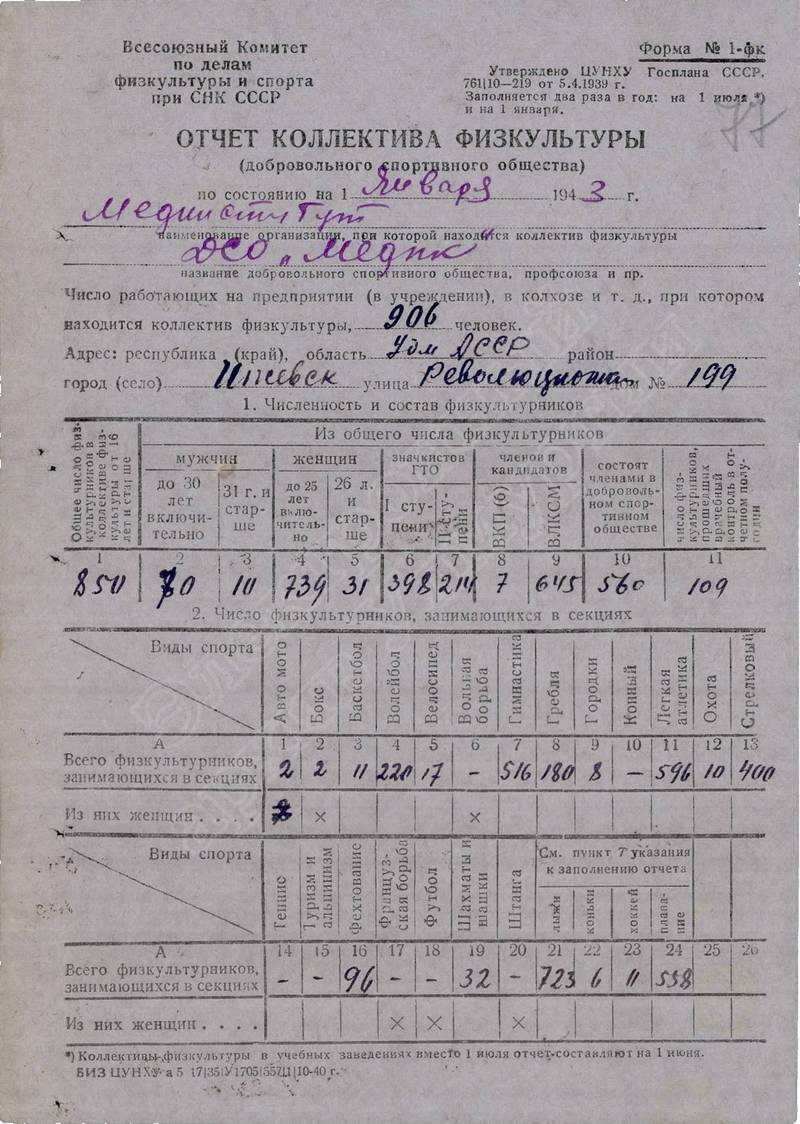 Всесоюзный Комитет
по делам
физкультуры и спорта
при СНК СССР
Форма № 1-фк
Утверждено ЦУНХУ Госплана СССР,
761|10—219 от 5.4.1939 г.
Заполняется два раза в год: на 1 июля *)
и на 1 января.
77
ОТЧЕТ КОЛЛЕКТИВА ФИЗКУЛЬТУРЫ
(добровольного спортивного общества)
по состоянию на 1 Января 1943 г.
Мединститут
наименование организации, при которой находится коллектив физкультуры
ДСО „Медик"
название добровольного спортивного общества, профсоюза и пр.
Число работающих на предприятии (в учреждении), в колхозе и т. д., при котором
находится коллектив физкультуры, 906 человек.
Адрес: республика (край), область Удм АССР район
город (село) Ижевск улица Революционная дом № 199
1. Численность и состав физкультурников
Общее число физкультурников в коллективе физкультуры от 16 лет и старше
Из общего числа физкультурников
мужчин
женщин
значкистов ГТО
членов и кандидатов
состоят членами в добровольном спортивном обществе
число физкультурников, прошедших врачебный контроль в отчетном полугодии
до 30 лет включительно
31 г. и старше
до 25 лет включительно
26 л. и старше
I ступени
II ступени
ВКП (б)
ВЛКСМ
1 2 3 4 5 6 7 8 9 10 11
850 70 10 739 31 398 214 7 645 560 109
2. Число физкультурников, занимающихся в секциях
Виды спорта
Авто мото
Бокс
Баскетбол
Волейбол
Велосипед
Вольная борьба
Гимнастика
Гребля
Городки
Конный
Легкая атлетика
Охота
Стрелковый
А 1 2 3 4 5 6 7 8 9 10 11 12 13
Всего физкультурников,
занимающихся в секциях 2 2 11 220 17 – 516 180 8 – 596 10 400
Из них женщин . . . . × ×
Виды спорта
Теннис
Туризм и альпинизм
Фехтование
Французская борьба
Футбол
Шахматы и шашки
Штанга
См. пункт 7 указания
к заполнению отчета
лыжи
коньки
хоккей
плавание
А 14 15 16 17 18 19 20 21 22 23 24 25 26
Всего физкультурников,
занимающихся в секциях – – 96 – – 32 – 723 6 11 558
Из них женщин . . . . × × ×
*) Коллективы физкультуры в учебных заведениях вместо 1 июля отчет составляют на 1 июня.